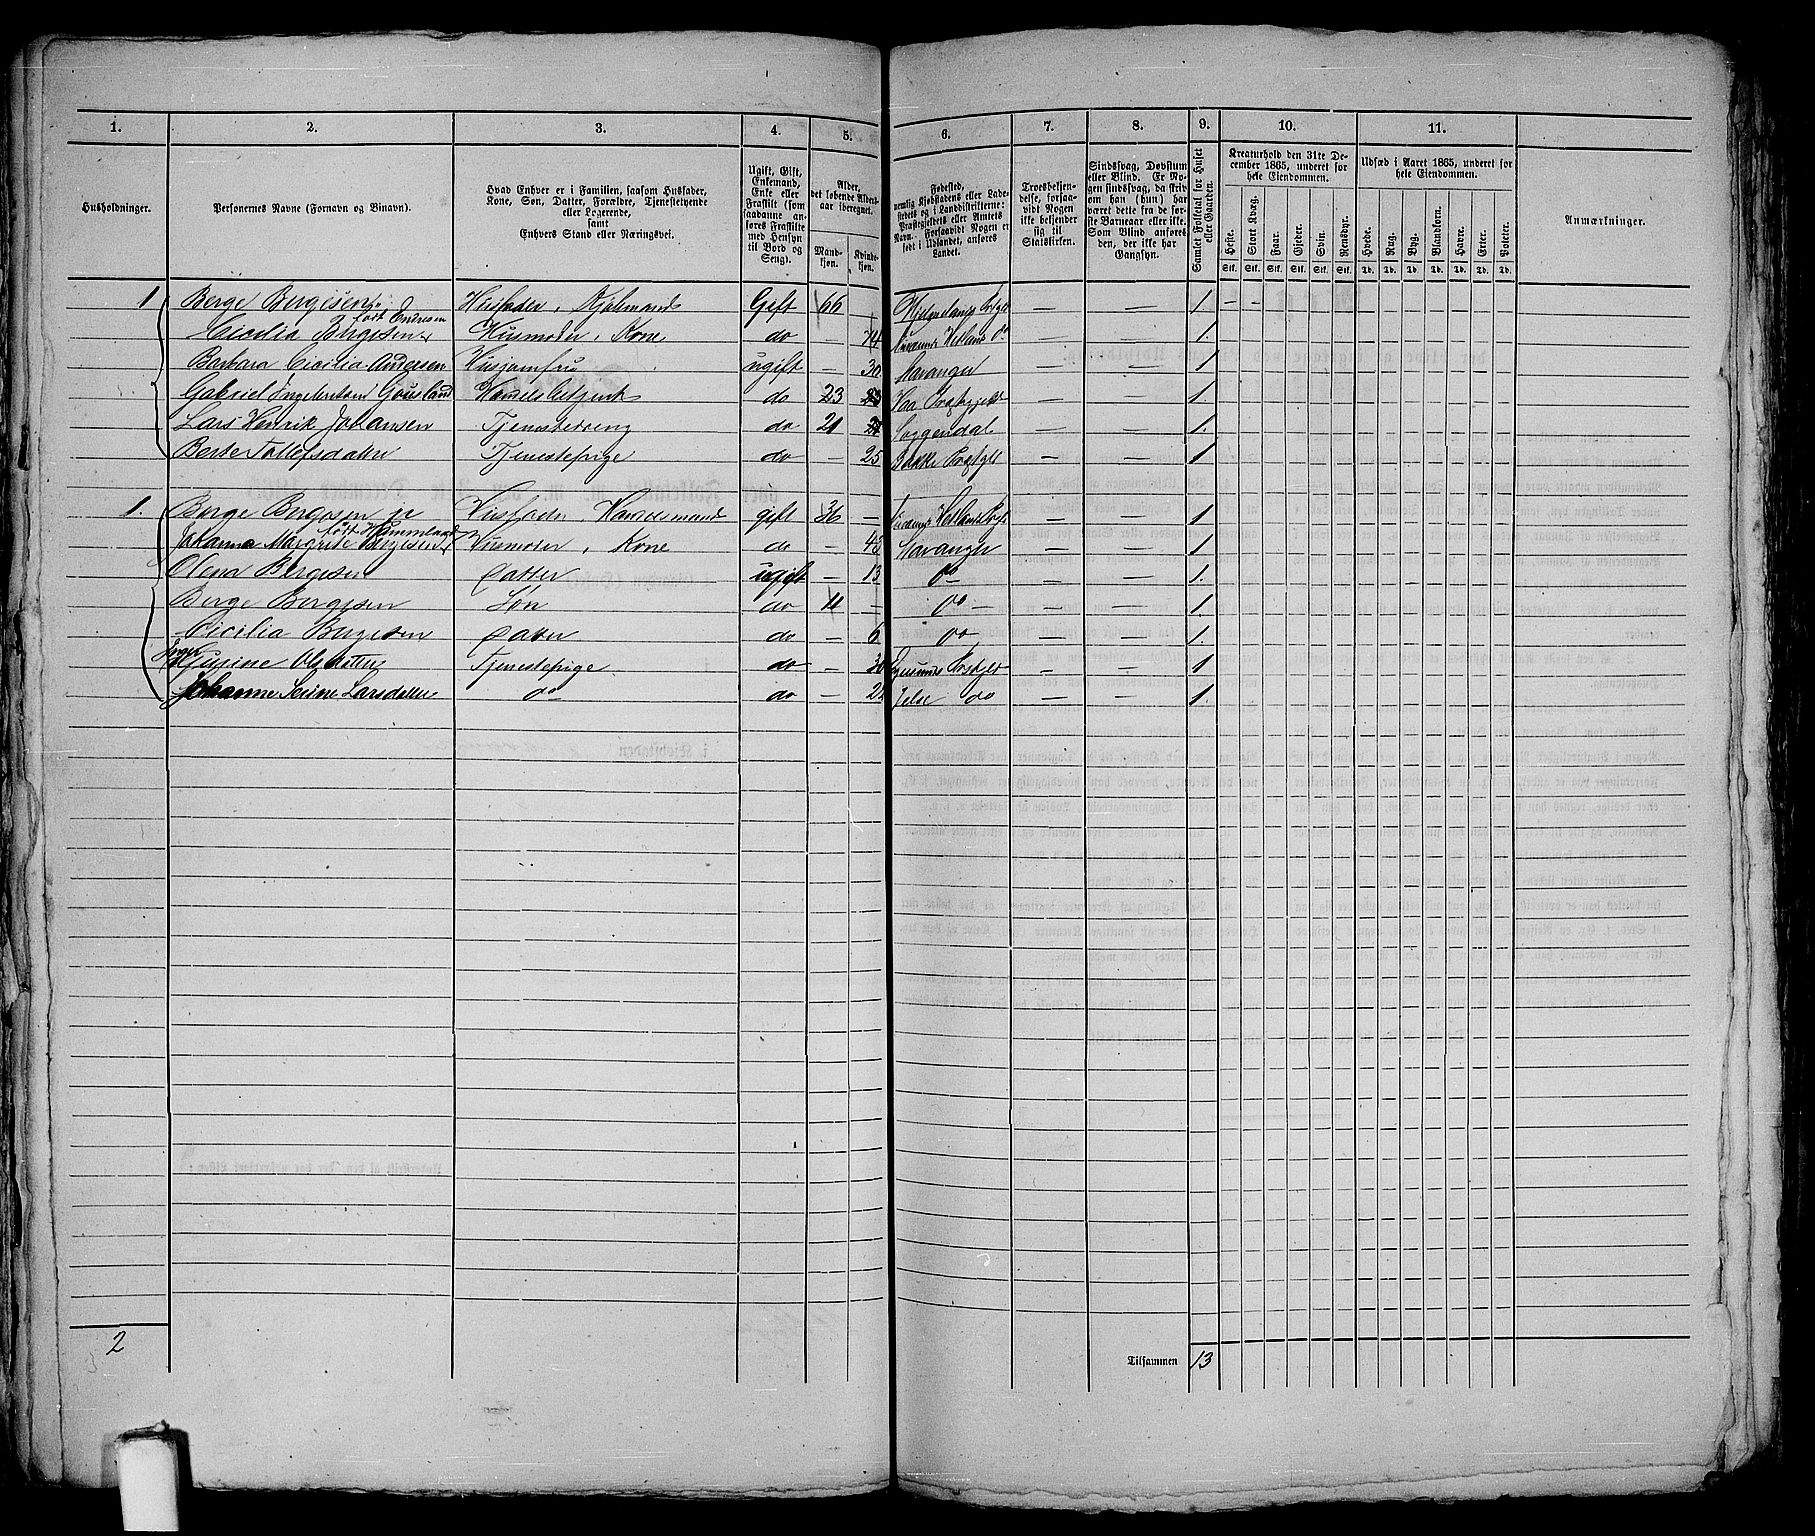 1. 2. 3. 4. 5. 6. 7. 8. 9. 10. 11.
Husholdninger.
Personernes Navne (Fornavn og Binavn).
Hvad Enhver er i Familien, saasom Husfader,
Kone, Søn, Datter, Forældre, Tjenestetyende
eller Logerende,
samt
Enhvers Stand eller Næringsvei.
Ugift, Gift,
Enkemand,
Enke eller
Fraskilt (som
saadanne an-
føres Fraskilte
med Hensyn
til Bord og
Seng).
Alder,
det løbende Alders-
aar iberegnet.
Mand-
kjøn.
Kvinde-
kjøn.
Fødested,
nemlig Kjøbstadens eller Lade-
stedets og i Landdistrikterne:
Præstegjeldets eller Amtets
Navn. Forsaavidt Nogen er
født i Udlandet, anføres
Landet.
Troesbekjen-
delse, forsaa-
vidt Nogen
ikke bekjender
sig til
Statskirken.
Sindssvag, Døvstum
eller Blind. Er No-
gen sindssvag, da skriv
om han (hun) har
været dette fra de før-
ste Barneaar eller ikke.
Som Blind anføres
den, der ikke har
Gangsyn.
Samlet Folketal for Huset
eller Gaarden.
Kreaturhold den 31te De-
cember 1865, underet for
hele Eiendommen.
Heste. Stort Kvæg. Faar. Gjeder. Svin. Rensdyr.
Stk. Stk. Stk. Stk. Stk. Stk.
Udsæd i Aaret 1865, underet for
hele Eiendommen.
Hvede. Rug. Byg. Blandkorn. Havre. Erter. Poteter.
Td. Td. Td. Td. Td. Td. Td.
Anmærkninger.
1 Berge Bergesen Husfader, Gift 66 — — — 1. — —
født Endresen
Cicilia Bergesen Husmoder, Kone do — 74 — — 1.
Barbara Cicilia Andersen Husjomfru ugift — 30 Stavanger — — 1.
Gabriel Ingebretsen Gousland Handelsbetjent do 23 Haa — — 1.
Lars Henrik Johansen Tjenestedreng do 21 Soggendal — — 1.
Berte Tollefsdatter Tjenestepige do — 25 Bakke — — 1
1. Berge Bergesen jr Husfader, Handelsmand gift 36 — — — 1
født Hammeland
Johanna Margrete Bergesen Husmoder, Kone do — Stavanger — — 1
Olena Bergesen Datter ugift — 13 do — — 1.
Berge Bergesen Søn do 11 — do — — — 1.
Cicilia Bergesen Datter do — 6 do — — 1.
Inger
Gurine Olsdatter Tjenestepige do — — — 1
Johanne Serine Larsdatter do do — Jelse do — — 1.
2
Tilsammen 13